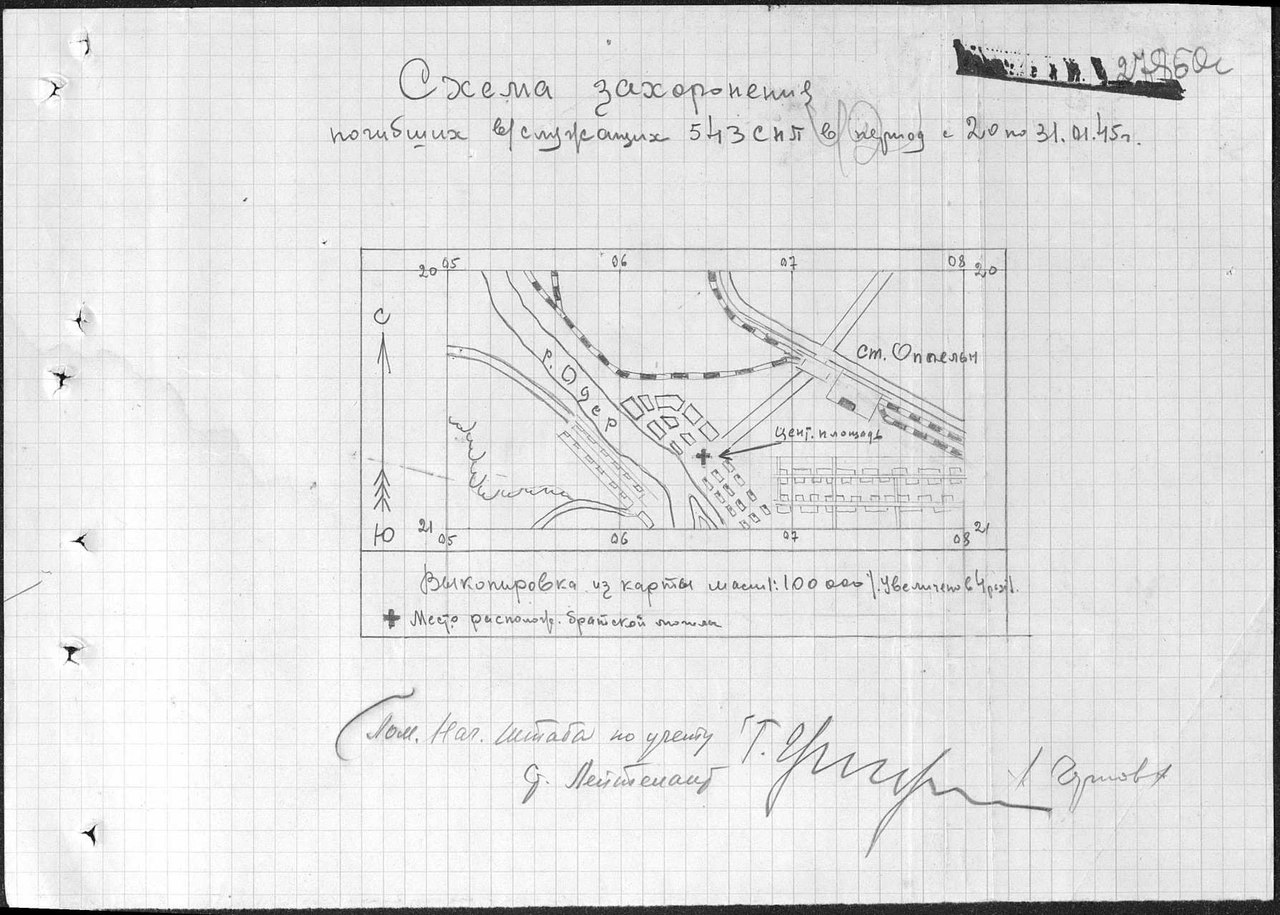 27860с
Схема захоронения
погибших в/служащих 543 СНП в период с 20 по 31.01.45г.
20 05 06 07 08 20
С
р. Одер
ст. Оппельн
цент. площадь
Ю
21 05 06 07 08 21
Выкопировка из карты масш. 1:100 000 /.Увеличено в 4 раза/.
Место располож. братской могилы
Пом. Нач. штаба по учету
Ст. Лейтенант